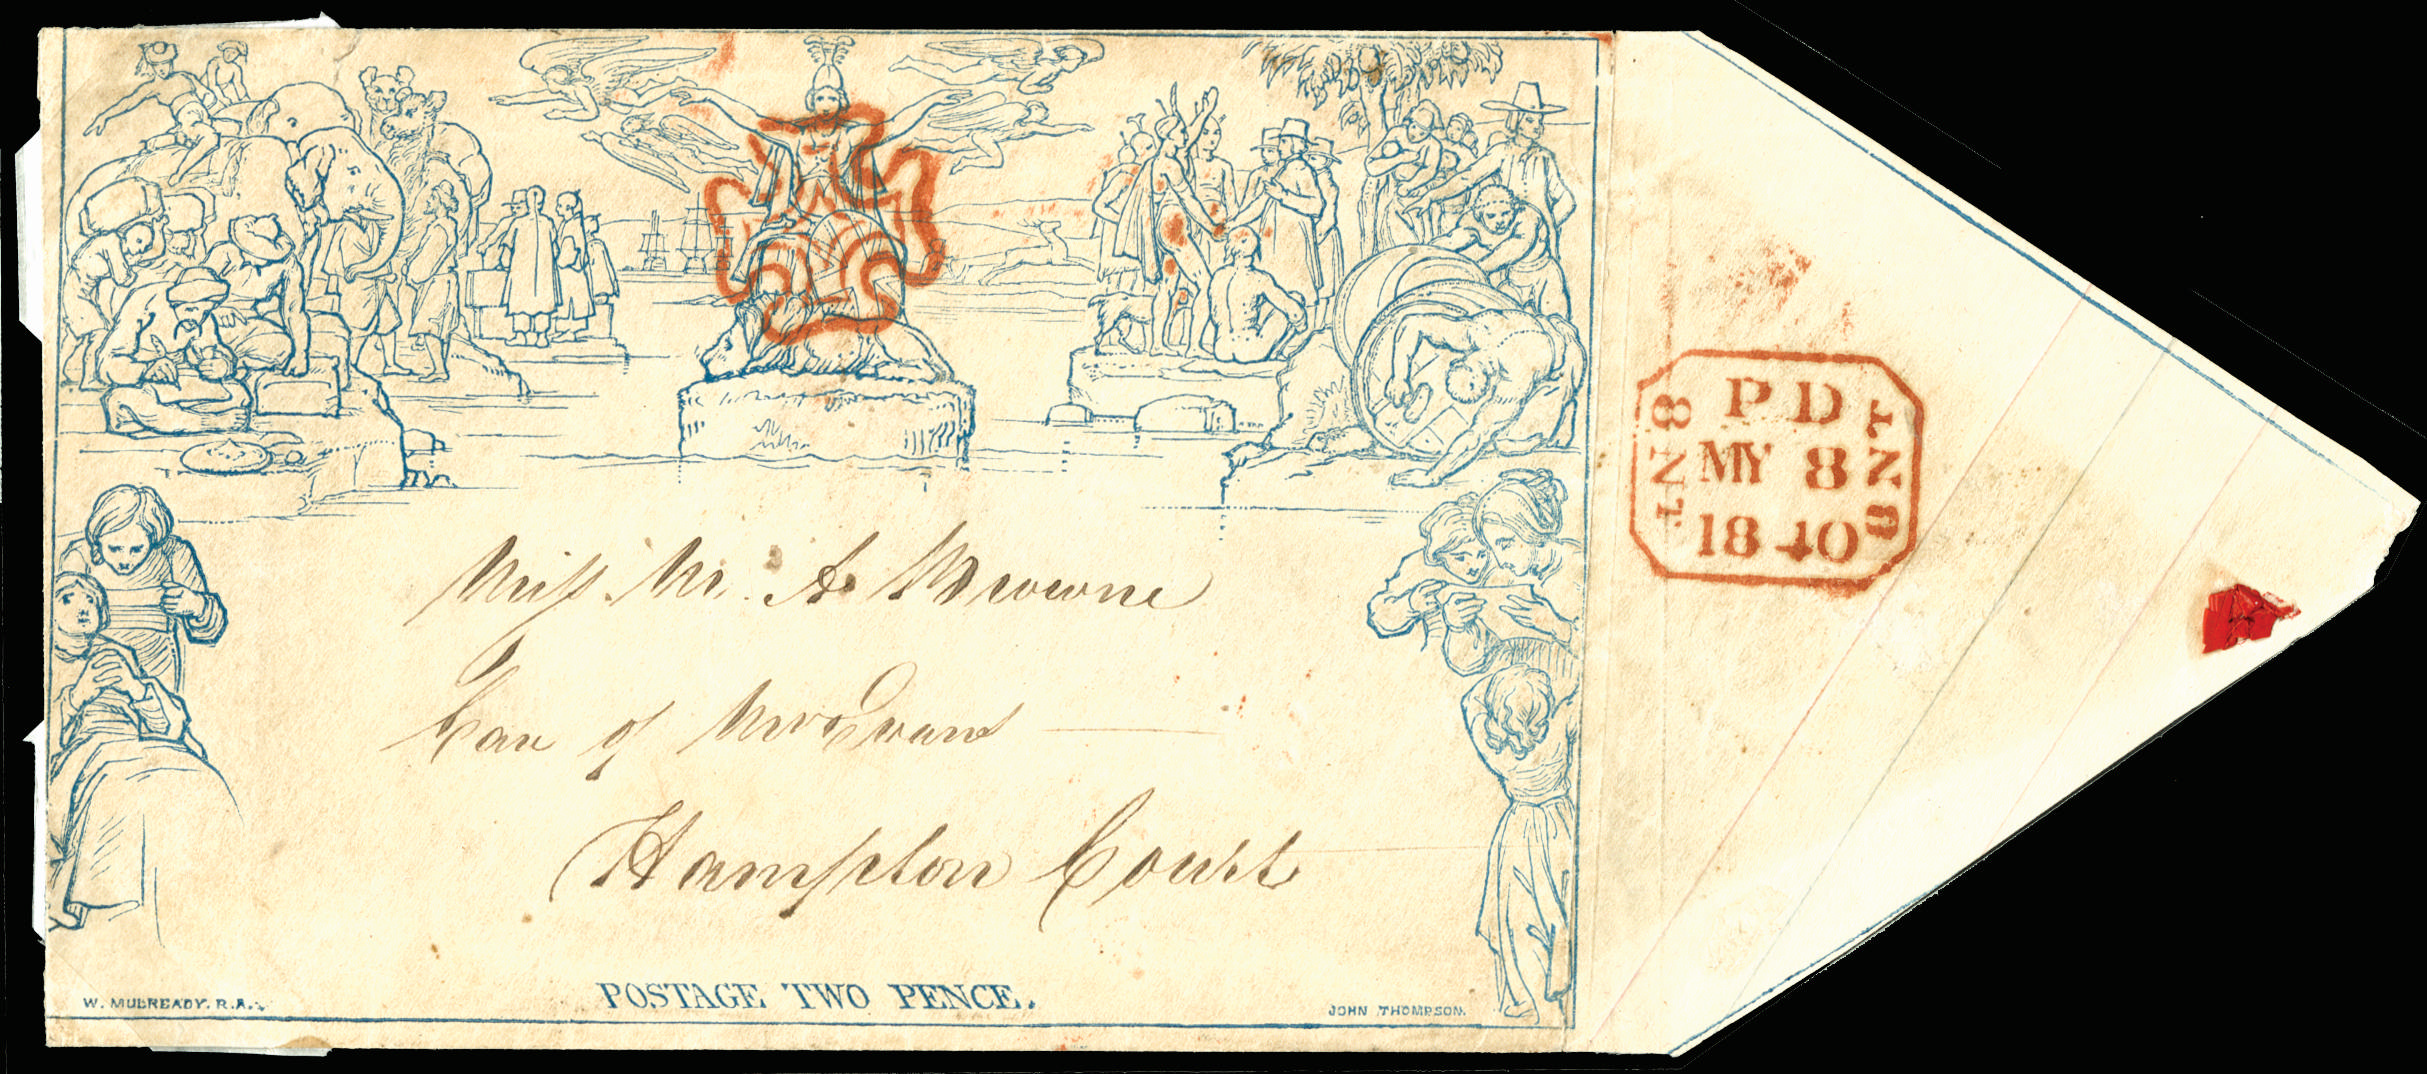 Miss M. A Browne
Care of Mrs Evans
Hampton Court
POSTAGE TWO PENCE.
W. MULREADY. R.A.
JOHN THOMPSON.
P D
MY 8
1840
8 NT
8 NT